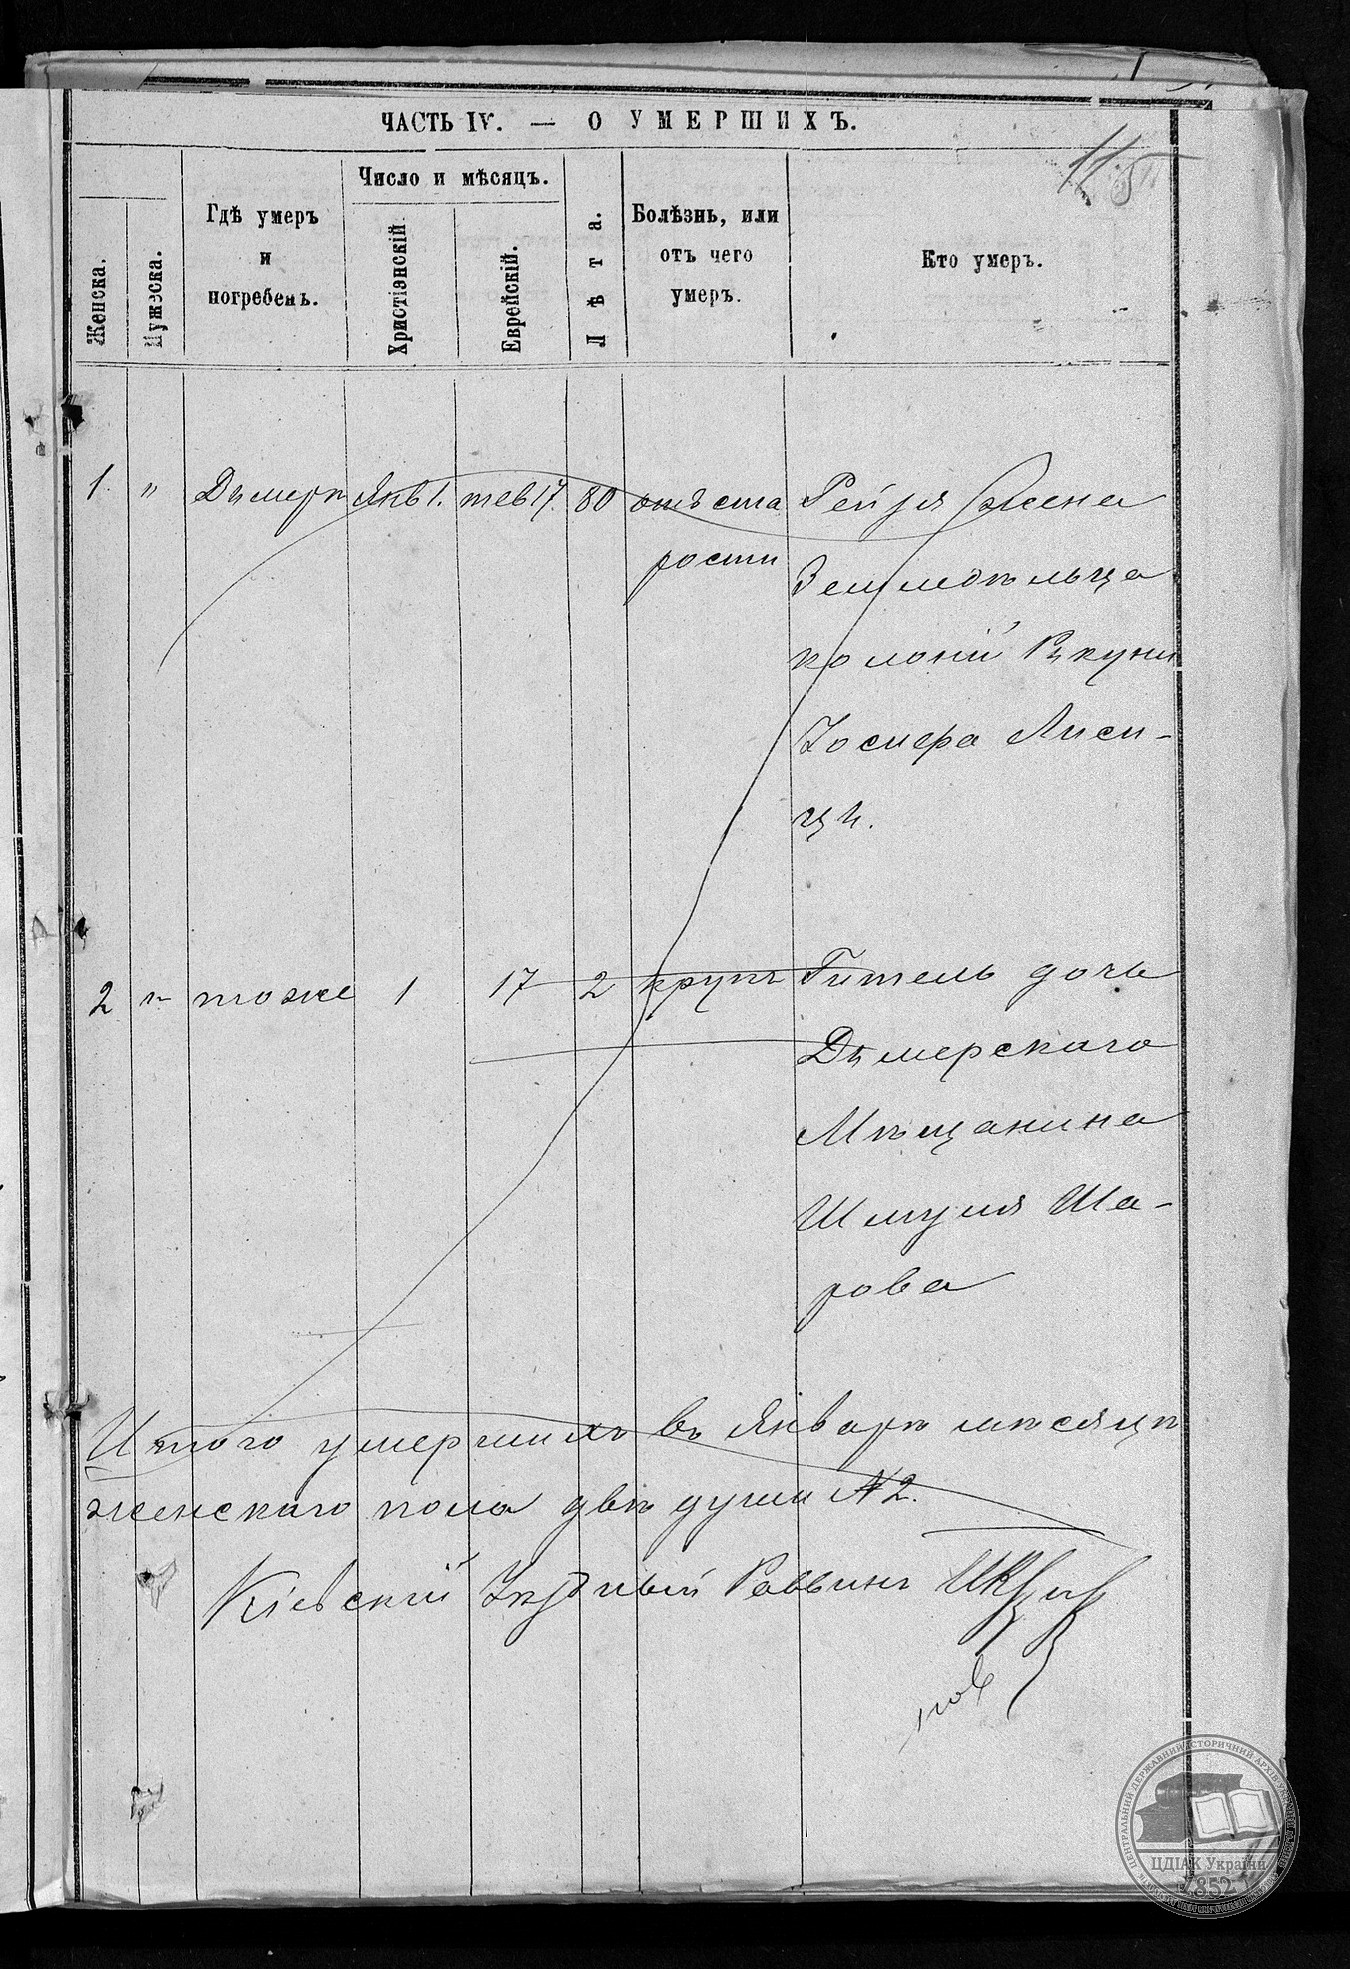 ЧАСТЬ IV. — О УМЕРШИХЪ.
Женска.
Мужеска.
Гдѣ умеръ
и
погребенъ.
Число и мѣсяцъ.
Христіэнскій.
Еврейскій.
Лѣта.
Болѣзнь, или
отъ чего
умеръ.
Кто умеръ.
1. " Дымеръ Янв 1. тев 17. 80 отъ ста
рости
Рейзя жена
Земледѣльца
колоніи
Іосифа Лиси-
цы.
2 " тоже 1 17 2 крупъ Гитель дочь
Дымерскаго
Мѣщанина
Шмуля Ша-
рова
Итого умершихъ въ Январѣ мѣсяцѣ
женскаго пола двѣ души №2.
Кіевскій Уѣздный Раввинъ
ЦЕНТРАЛЬНИЙ ДЕРЖАВНИЙ ІСТОРИЧНИЙ АРХІВ УКРАЇНИ
ЦДІАК України
1852